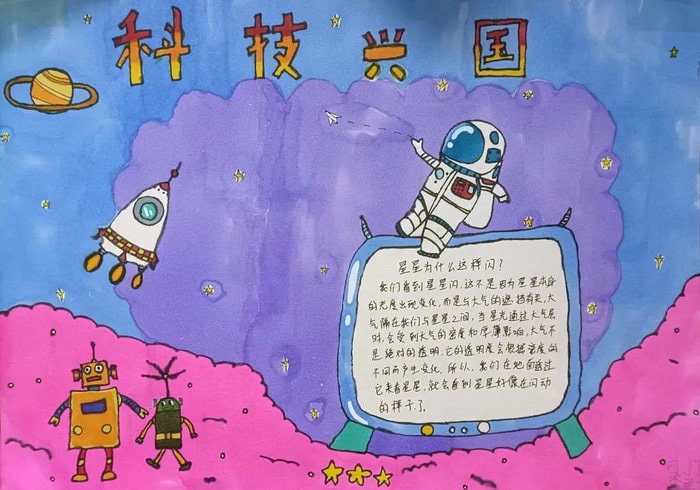 科技兴国
星星为什么这样闪?
我们看到星星闪,这不是因为星星本身
的光度出现变化,而是与大气的遮挡有关,大
气隔在我们与星星之间,当星光通过大气层
时,会受到大气的密度和厚薄影响,大气不
是绝对的透明,它的透明度会根据密度的
不同而产生变化,所以,我们在地面透过
它来看星星,就会看到星星好像在闪动
的样子了。